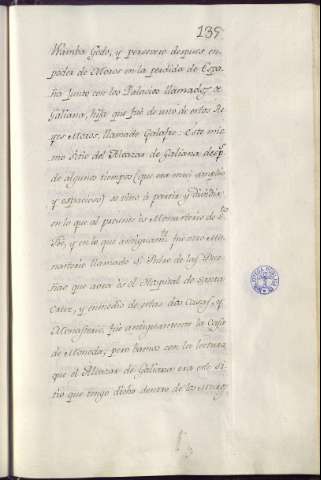 139
Wamba Godo, y permanecio despues en
poder de Moros en la perdida de Espa
ña junto con los Palacios llamados de
Galiana, hija que fue de uno de estos Re
yes Moros, llamado Galafre: Este mis
mo sitio del Alcazar de Galiana desp.s
de algunos tiempos (que era mui amplio
y espacioso) se vino à partir y dividir
en lo que al presente es Monasterio de S.ta
Fee, y en lo que antiguam.te fue otro Mo
nasterio llamado S. Pedro de las Due
ñas que aora es el Hospital de Santa
Cruz, y enmedio de estas dos Casas, y
Monasterios, fue antiguamente la Casa
de Moneda; pero vamos con la lectura
que el Alcazar de Galiana era este si
tio que tengo dicho dentro de los Muros